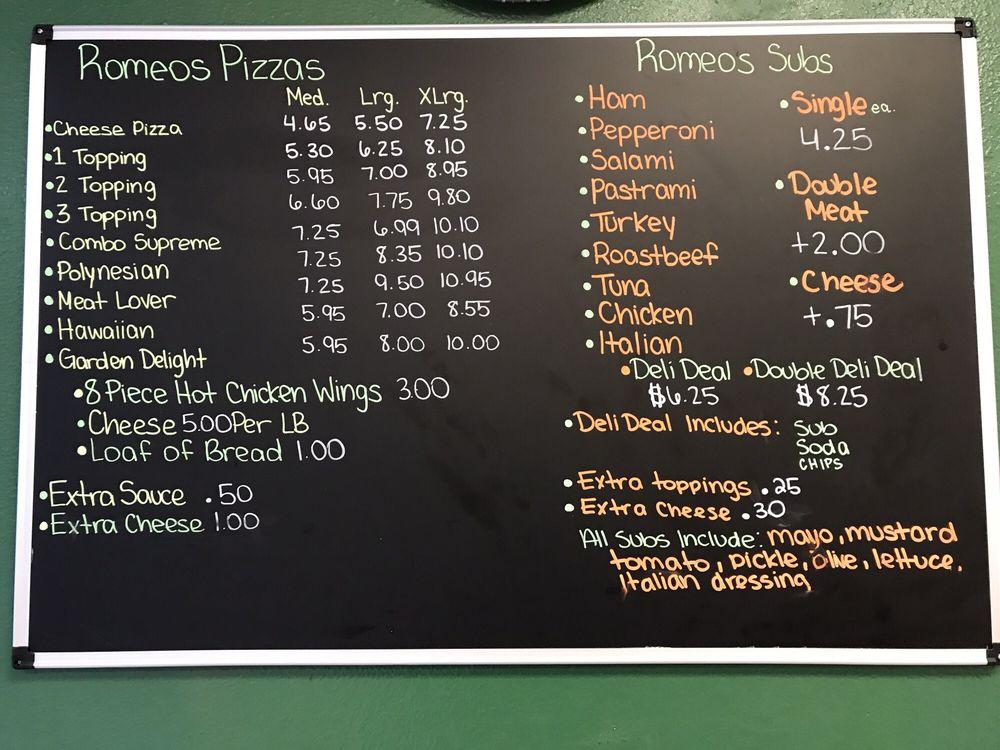 Romeos Pizzas
Med. Lrg. XLrg.
•Cheese Pizza 4.65 5.50 7.25
•1 Topping 5.30 6.25 8.10
•2 Topping 5.95 7.00 8.95
•3 Topping 6.60 7.75 9.80
•Combo Supreme 7.25 6.99 10.10
•Polynesian 7.25 8.35 10.10
•Meat Lover 7.25 9.50 10.95
•Hawaiian 5.95 7.00 8.55
•Garden Delight 5.95 8.00 10.00
•8 Piece Hot Chicken Wings 3.00
•Cheese 5.00 Per LB
•Loaf of Bread 1.00
•Extra Sauce .50
•Extra Cheese 1.00
Romeos Subs
•Ham
•Pepperoni
•Salami
•Pastrami
•Turkey
•Roastbeef
•Tuna
•Chicken
•Italian
•Single ea.
4.25
•Double
Meat
+2.00
•Cheese
+.75
•Deli Deal •Double Deli Deal
$6.25 $8.25
•Deli Deal Includes: Sub
Soda
CHIPS
•Extra toppings .25
•Extra Cheese .30
All Subs Include: mayo, mustard
tomato, pickle, olive, lettuce,
Italian dressing